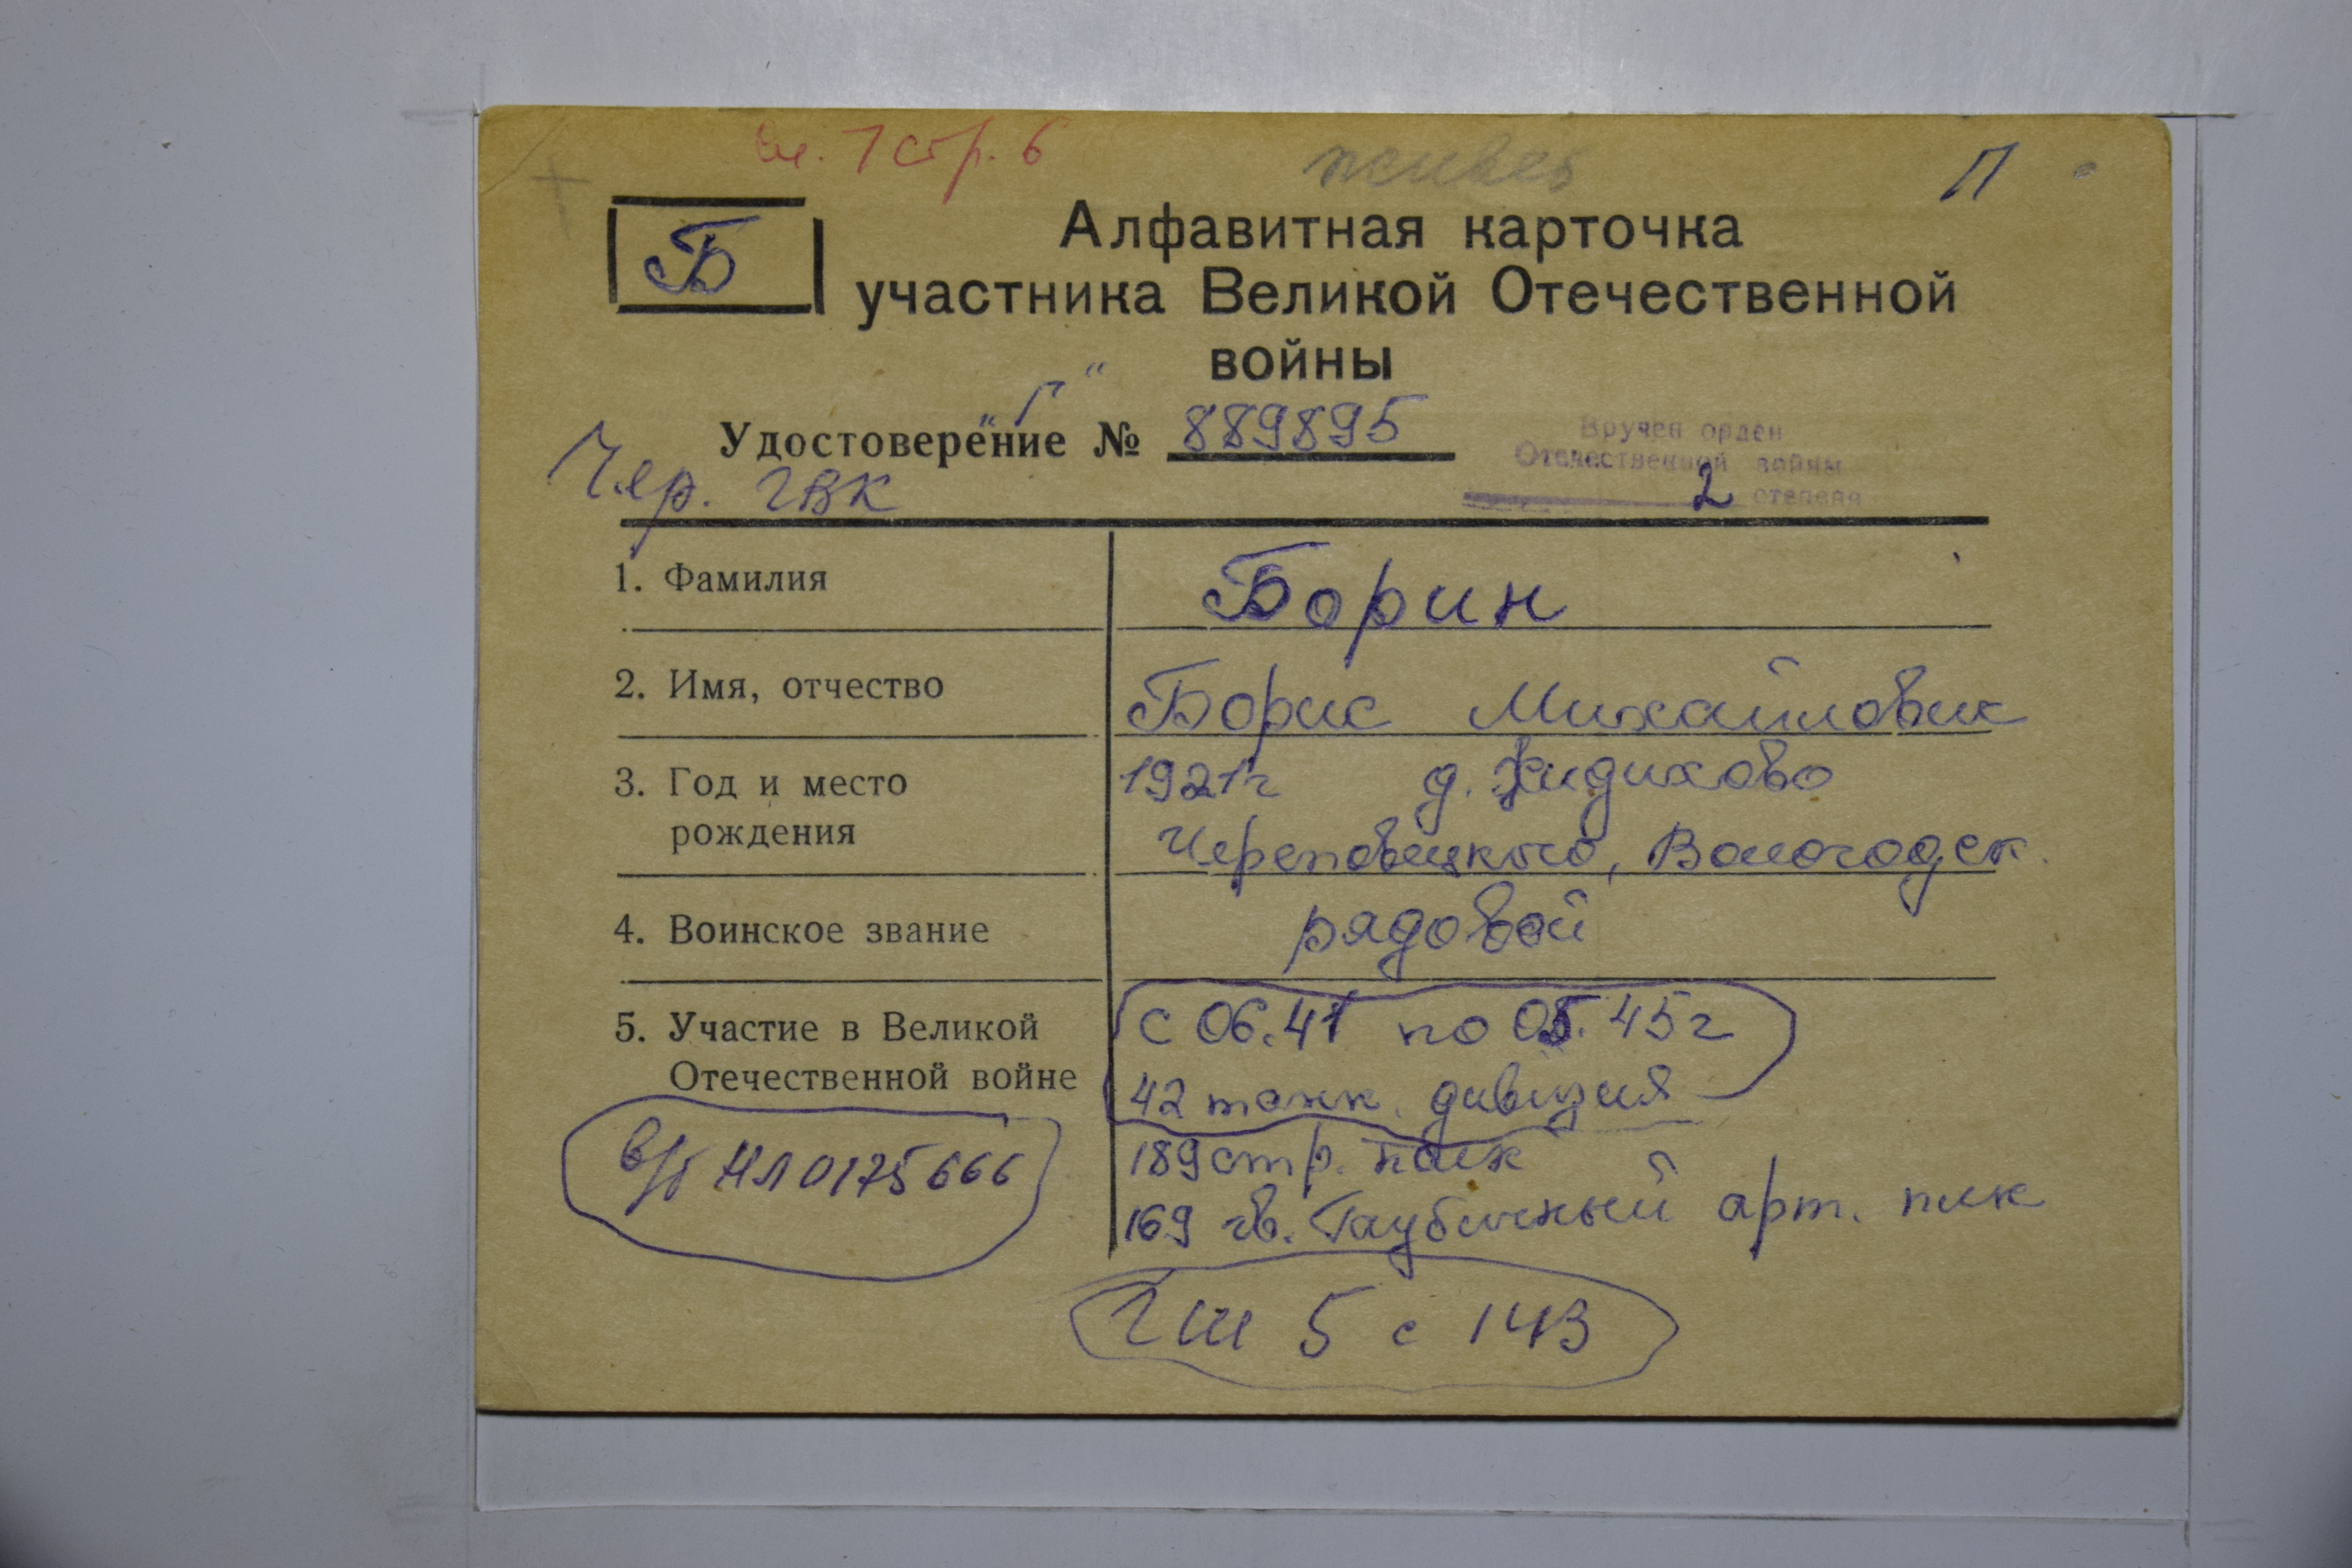 стр. 6
П
Б
Алфавитная карточка
участника Великой Отечественной
войны
"Г"
Удостоверение № 889895
Вручен орден
Отечественной войны
2 степени
Чер. ГВК
1. Фамилия
Борин
2. Имя, отчество
Борис Михайлович
3. Год и место
рождения
1921г д. Жидихово
Череповецкого, Вологодск.
4. Воинское звание
рядовой
5. Участие в Великой
Отечественной войне
с 06.41 по 05.45г
42 танк. дивизия
189 стр. полк
169 гв. Гаубичный арт. плк
в/б НЛ 0175666
ГШ 5 с 143